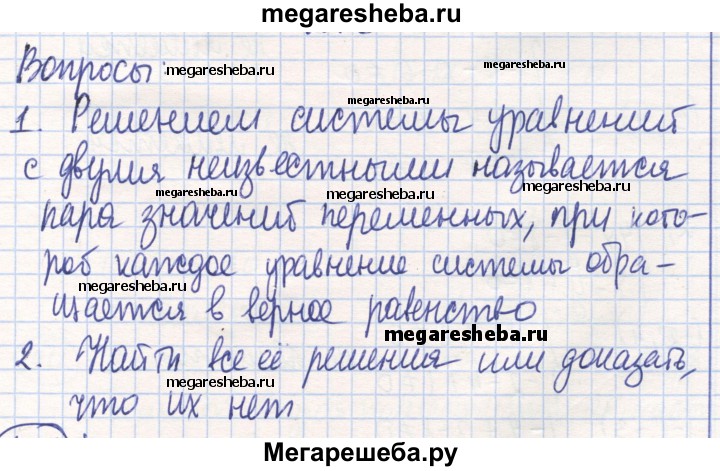 megaresheba.ru
Вопросы:
megaresheba.ru
megaresheba.ru
megaresheba.ru
1. Решением системы уравнений
с двумя неизвестными называется
megaresheba.ru
megaresheba.ru
пара значений переменных, при кото-
рой каждое уравнение системы обра-
щается в верное равенство
megaresheba.ru
2. Найти все её решения или доказать,
megaresheba.ru
что их нет
Мегарешеба.ру